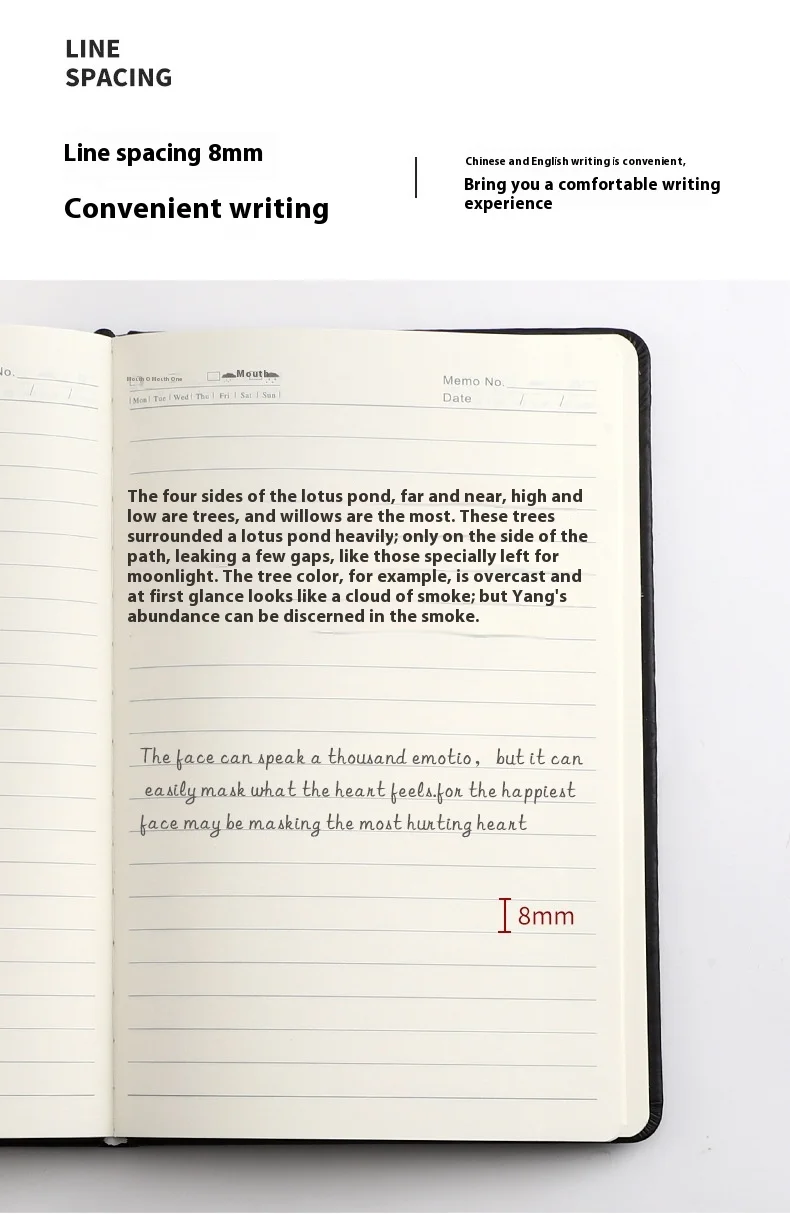 LINE
SPACING
Line spacing 8mm
Convenient writing
Chinese and English writing is convenient,
Bring you a comfortable writing
experience
No.
/ /
Mouth
Mon Tue Wed Thu Fri Sat Sun
Memo No.
Date / /
The four sides of the lotus pond, far and near, high and
low are trees, and willows are the most. These trees
surrounded a lotus pond heavily; only on the side of the
path, leaking a few gaps, like those specially left for
moonlight. The tree color, for example, is overcast and
at first glance looks like a cloud of smoke; but Yang's
abundance can be discerned in the smoke.
The face can speak a thousand emotio, but it can
easily mask what the heart feels.for the happiest
face may be masking the most hurting heart
8mm